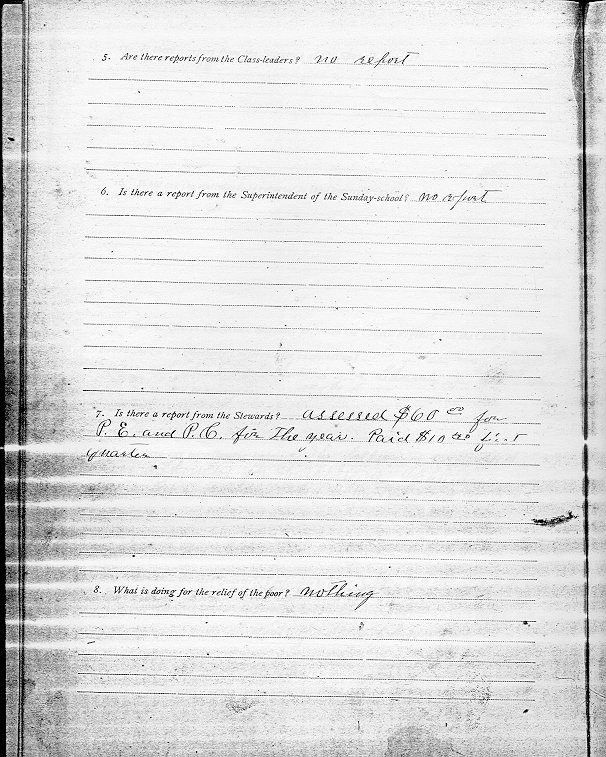 5. Are there reports from the Class-leaders? no report
6. Is there a report from the Superintendent of the Sunday-school? no report
7. Is there a report from the Stewards? assessed $60 00 for
P. E. and P. C. for The year. Paid $10 00 first
quarter
8. What is doing for the relief of the poor? nothing